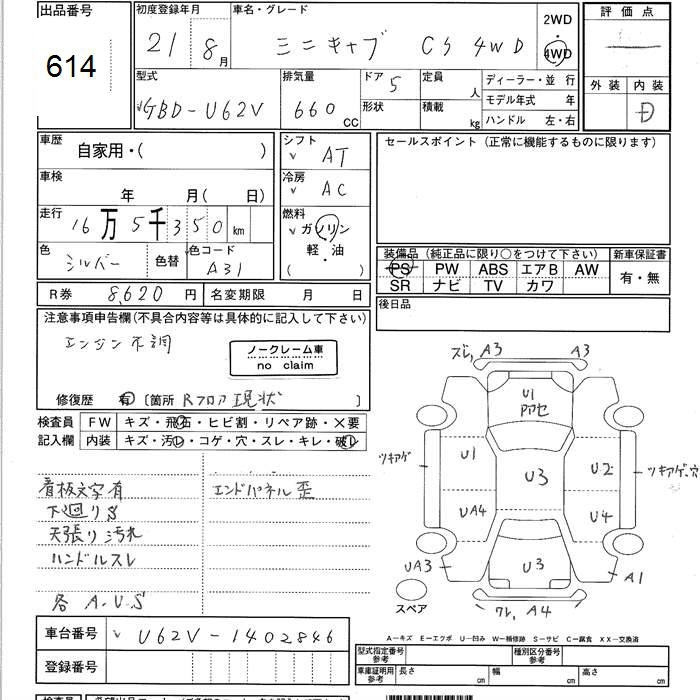 出品番号 初度登録年月 車名・グレード 2WD 評価点
614 21 8月 ミニキャブ CS 4WD ・ 4WD
型式 排気量 ドア 5 定員 人 ディーラー・並 行 外装 内装
GBD-U62V 660 CC 形状 積載 kg モデル年式 年 D
ハンドル 左・右
車歴 自家用・( ) シフト AT セールスポイント (正常に機能するものに限ります)
車検 年 月(日) 冷房 AC
走行 16万5千350 km 燃料 ガソリン
色 シルバー 色替 色コード A31 軽・油
( )
装備品 (純正品に限り○をつけて下さい) 新車保証書
PS PW ABS エアB AW 有・無
SR ナビ TV カワ
R券 8,620 円 名変期限 月 日 後日品
注意事項申告欄(不具合内容等は具体的に記入して下さい)
エンジン不調
ノークレーム車
no claim
修復歴 有 [箇所 Rフロア現状 ]
検査員 FW キズ・飛石・ヒビ割・リペア跡・×要
記入欄 内装 キズ・汚レ・コゲ・穴・スレ・キレ・破レ
看板文字有 エンドパネル歪
下廻りS
天張り汚れ
ハンドルスレ
各 A.U.S
ズレ, A3 A3
U1
ツキアゲ U1 U3 U2 ツキアゲ,穴
UA4 U4
UA3 U3 A1
スペア ワレ, A4
A−キズ E−エクボ U−凹み W−補修跡 S−サビ C−腐食 XX−交換済
車台番号 U62V-1402846
登録番号
型式指定番号 参考 種別区分番号 参考
車庫証明用 参考 長さ cm 幅 cm 高さ cm